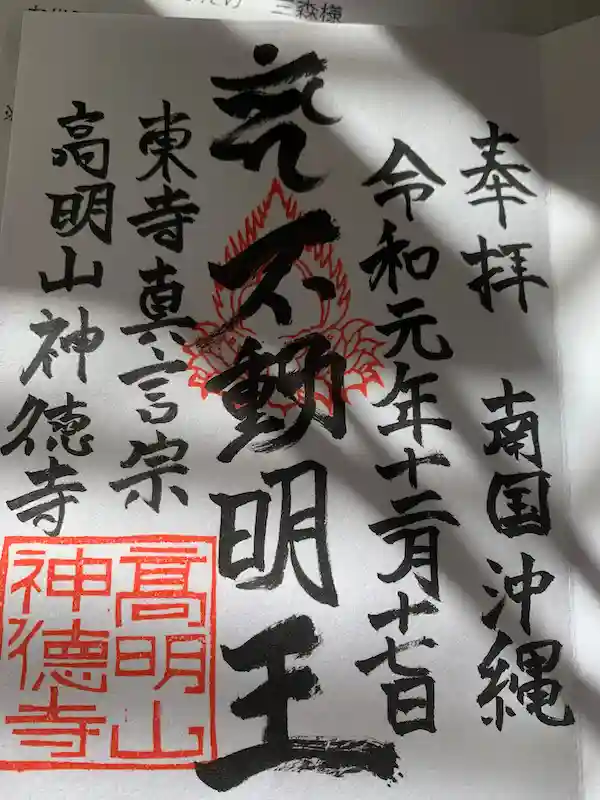 三森様
奉拝
南国沖縄
令和元年十二月十七日
不動明王
東寺真言宗
高明山神徳寺
高明山
神徳寺